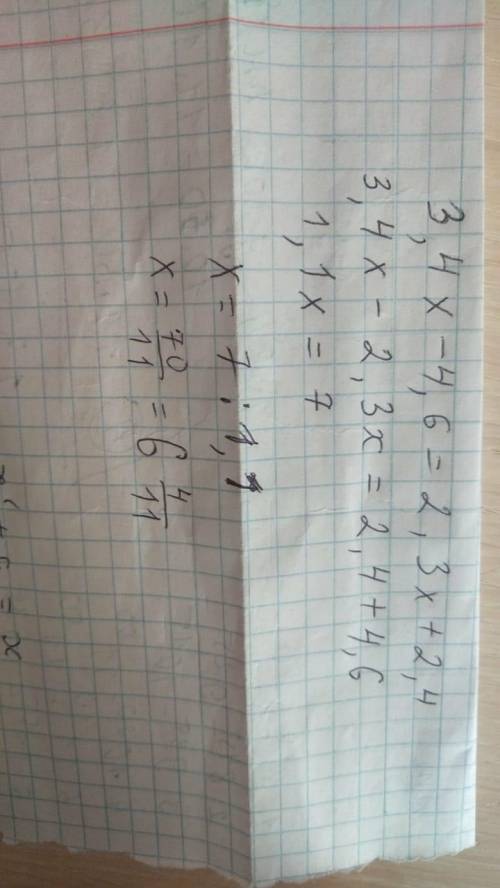 3,4x-4,6=2,3x+2,4
3,4x-2,3x=2,4+4,6
1,1x=7
x=7:1,1
x=70/11=6 4/11